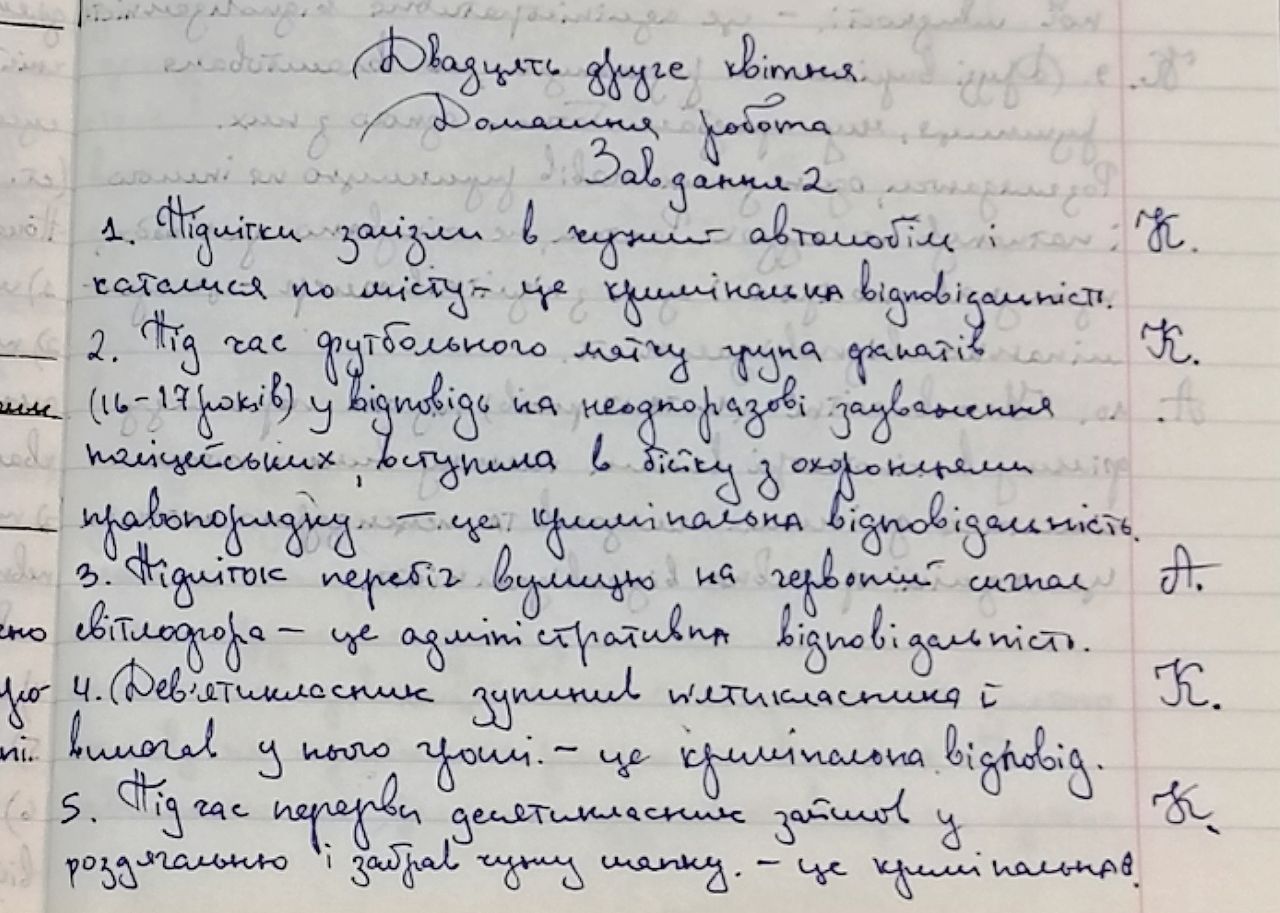 Двадцять друге квітня
Домашня робота
Завдання 2
1. Підлітки залізли в чужий автомобіль і К.
каталися по місту - це кримінальна відповідальність.
2. Під час футбольного матчу група фанатів К.
(16-17 років) у відповідь на неодноразові зауваження
поліцейських, вступила в бійку з охоронцями
правопорядку — це кримінальна відповідальність.
3. Підліток перебіг вулицю на червоний сигнал А.
світлофора — це адміністративна відповідальність.
4. Дев'ятикласник зупинив п'ятикласника і К.
вимагав у нього гроші. - це кримінальна відповід.
5. Під час перерви десятикласник зайшов у К.
роздягальню і забрав чужу шапку. - це кримінальна в.